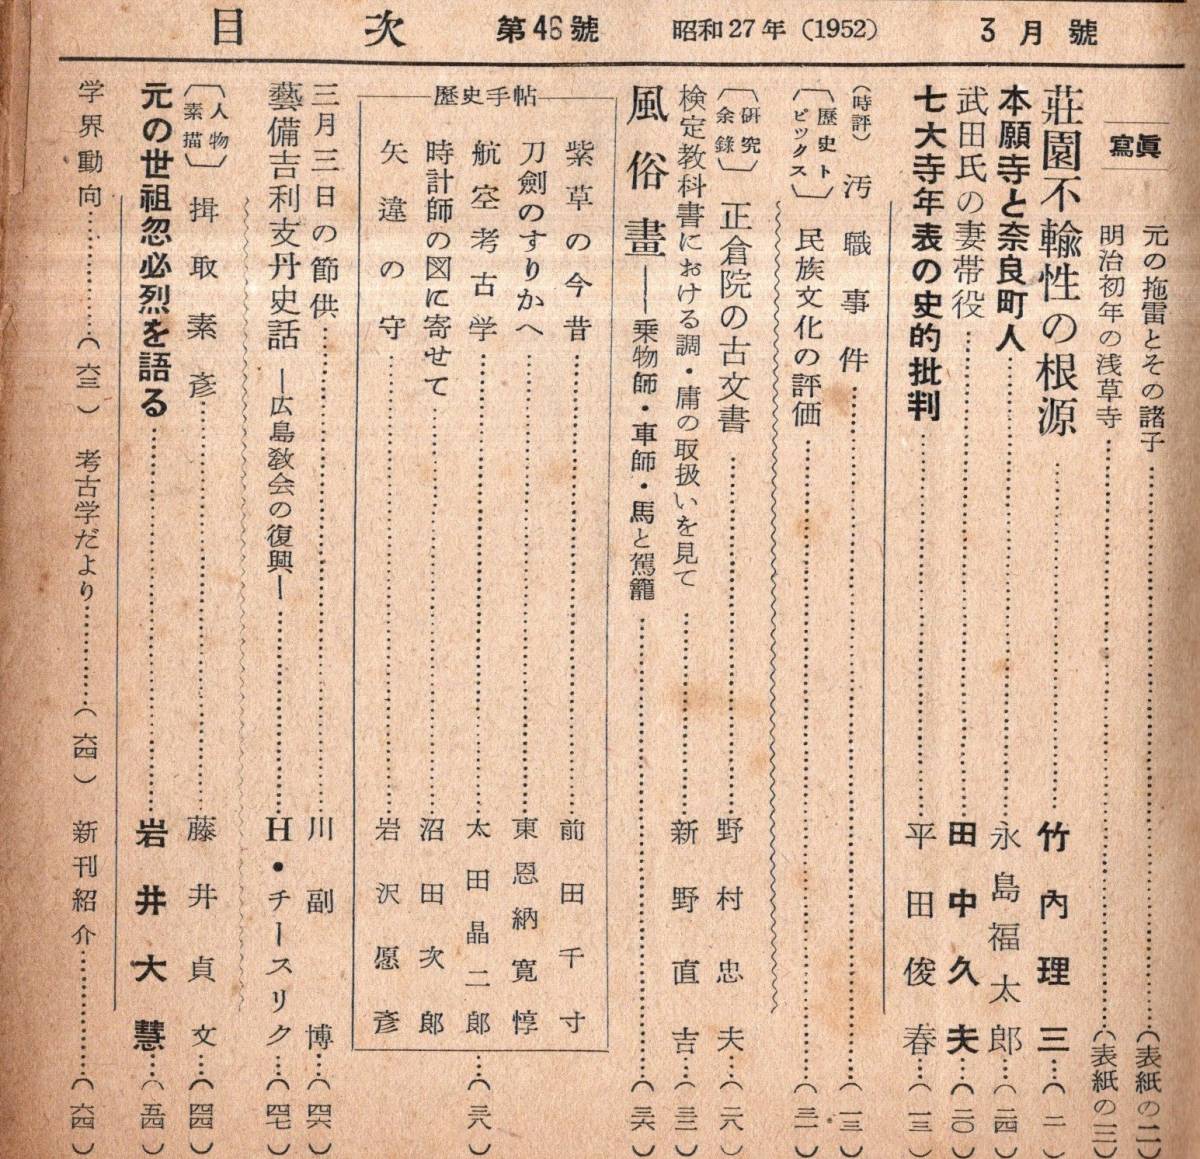 目次 第46號 昭和27年(1952) 3月號
寫眞
元の拖雷とその諸子……(表紙の二)
明治初年の浅草寺……(表紙の三)
莊園不輸性の根源……竹內理三…(二)
本願寺と奈良町人……永島福太郎…(二四)
武田氏の妻帯役……田中久夫…(二〇)
七大寺年表の史的批判……平田俊春…(一三)
(時評)汚職事件……(一三)
〔歴史トピックス〕民族文化の評価……(三一)
〔研究余錄〕正倉院の古文書……野村忠夫…(二八)
検定教科書における調・庸の取扱いを見て……新野直吉…(三二)
風俗畫——乗物師・車師・馬と駕籠……(三六)
歷史手帖
紫草の今昔……前田千寸
刀劍のすりかへ……東恩納寛惇
航空考古学……太田晶二郎…(三八)
時計師の図に寄せて……沼田次郎
矢違の守……岩沢愿彦
三月三日の節供……川副博…(四六)
藝備吉利支丹史話—広島教会の復興—……H・チースリク…(四七)
〔人物素描〕揖取素彦……藤井貞文…(四四)
元の世祖忽必烈を語る……岩井大慧…(五四)
学界動向……(六三) 考古学だより……(六四) 新刊紹介……(六四)